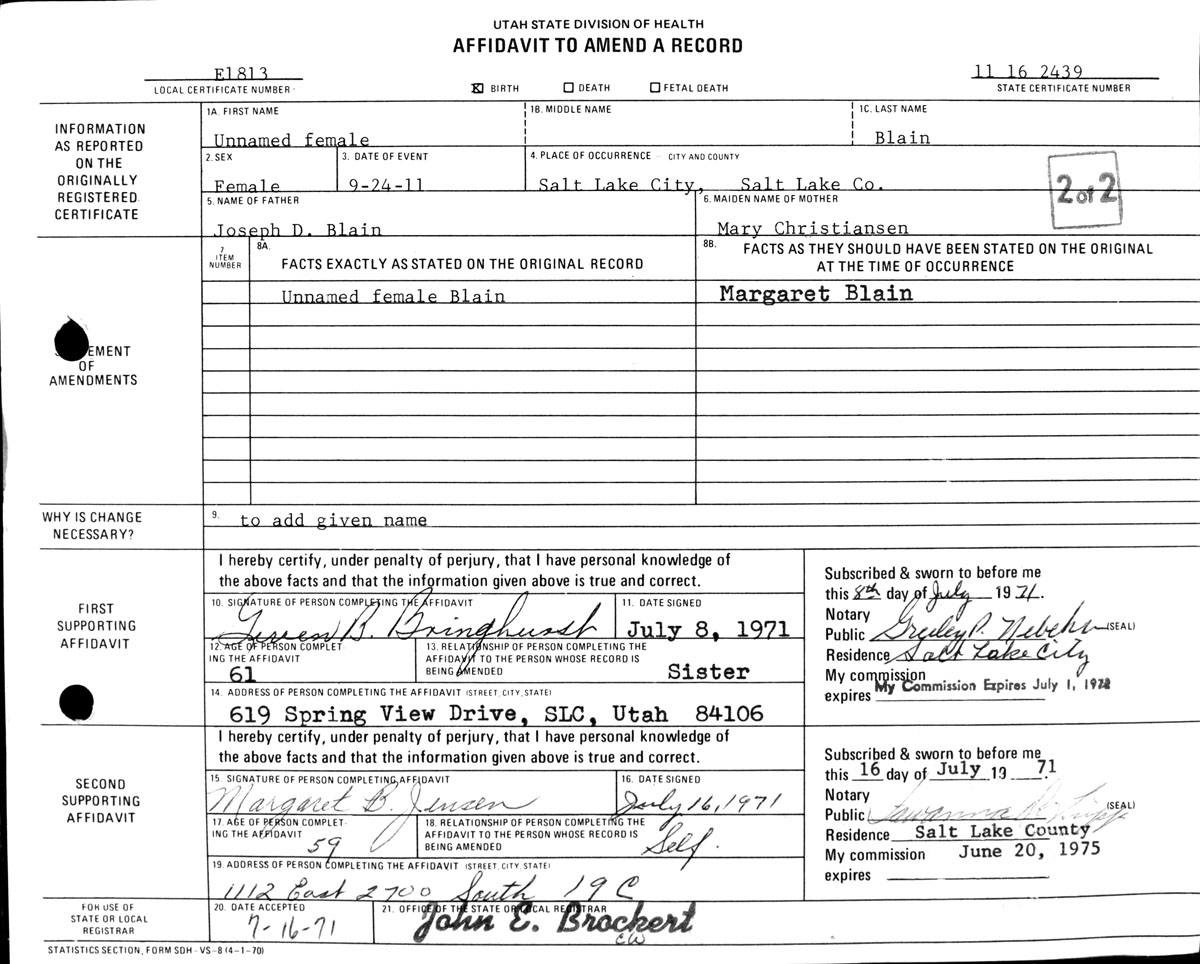 UTAH STATE DIVISION OF HEALTH
AFFIDAVIT TO AMEND A RECORD
E1813
LOCAL CERTIFICATE NUMBER
☒ BIRTH ☐ DEATH ☐ FETAL DEATH
11 16 2439
STATE CERTIFICATE NUMBER
INFORMATION
AS REPORTED
ON THE
ORIGINALLY
REGISTERED
CERTIFICATE
1A. FIRST NAME 1B. MIDDLE NAME 1C. LAST NAME
Unnamed female Blain
2. SEX 3. DATE OF EVENT 4. PLACE OF OCCURRENCE - CITY AND COUNTY
Female 9-24-11 Salt Lake City, Salt Lake Co.
2 of 2
5. NAME OF FATHER 6. MAIDEN NAME OF MOTHER
Joseph D. Blain Mary Christiansen
7 ITEM NUMBER
8A. FACTS EXACTLY AS STATED ON THE ORIGINAL RECORD
8B. FACTS AS THEY SHOULD HAVE BEEN STATED ON THE ORIGINAL
AT THE TIME OF OCCURRENCE
Unnamed female Blain Margaret Blain
EMENT
OF
AMENDMENTS
WHY IS CHANGE
NECESSARY?
9. to add given name
FIRST
SUPPORTING
AFFIDAVIT
I hereby certify, under penalty of perjury, that I have personal knowledge of
the above facts and that the information given above is true and correct.
10. SIGNATURE OF PERSON COMPLETING THE AFFIDAVIT 11. DATE SIGNED
B. Bringhurst July 8, 1971
12. AGE OF PERSON COMPLET-
ING THE AFFIDAVIT
61
13. RELATIONSHIP OF PERSON COMPLETING THE
AFFIDAVIT TO THE PERSON WHOSE RECORD IS
BEING AMENDED Sister
14. ADDRESS OF PERSON COMPLETING THE AFFIDAVIT (STREET, CITY, STATE)
619 Spring View Drive, SLC, Utah 84106
Subscribed & sworn to before me
this 8th day of July 1971.
Notary
Public (SEAL)
Residence Salt Lake City
My commission
expires My Commission Expires July 1, 1972
SECOND
SUPPORTING
AFFIDAVIT
I hereby certify, under penalty of perjury, that I have personal knowledge of
the above facts and that the information given above is true and correct.
15. SIGNATURE OF PERSON COMPLETING AFFIDAVIT 16. DATE SIGNED
Margaret B. Jensen July 16, 1971
17. AGE OF PERSON COMPLET-
ING THE AFFIDAVIT
59
18. RELATIONSHIP OF PERSON COMPLETING THE
AFFIDAVIT TO THE PERSON WHOSE RECORD IS
BEING AMENDED Self.
19. ADDRESS OF PERSON COMPLETING THE AFFIDAVIT (STREET, CITY, STATE)
1112 East 2700 South 19C
Subscribed & sworn to before me
this 16 day of July 19 71
Notary
Public (SEAL)
Residence Salt Lake County
My commission June 20, 1975
expires
FOR USE OF
STATE OR LOCAL
REGISTRAR
20. DATE ACCEPTED 21. OFFICE OF THE STATE OR LOCAL REGISTRAR
7-16-71 John E. Brockert
CW
STATISTICS SECTION, FORM SDH-VS-8 (4-1-70)